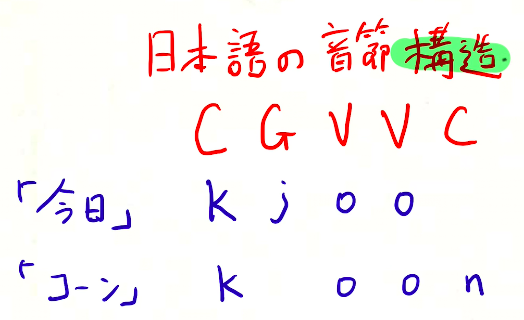 日本語の音節構造.
C G V V C
「今日」 k j o o
「コーン」 k o o n